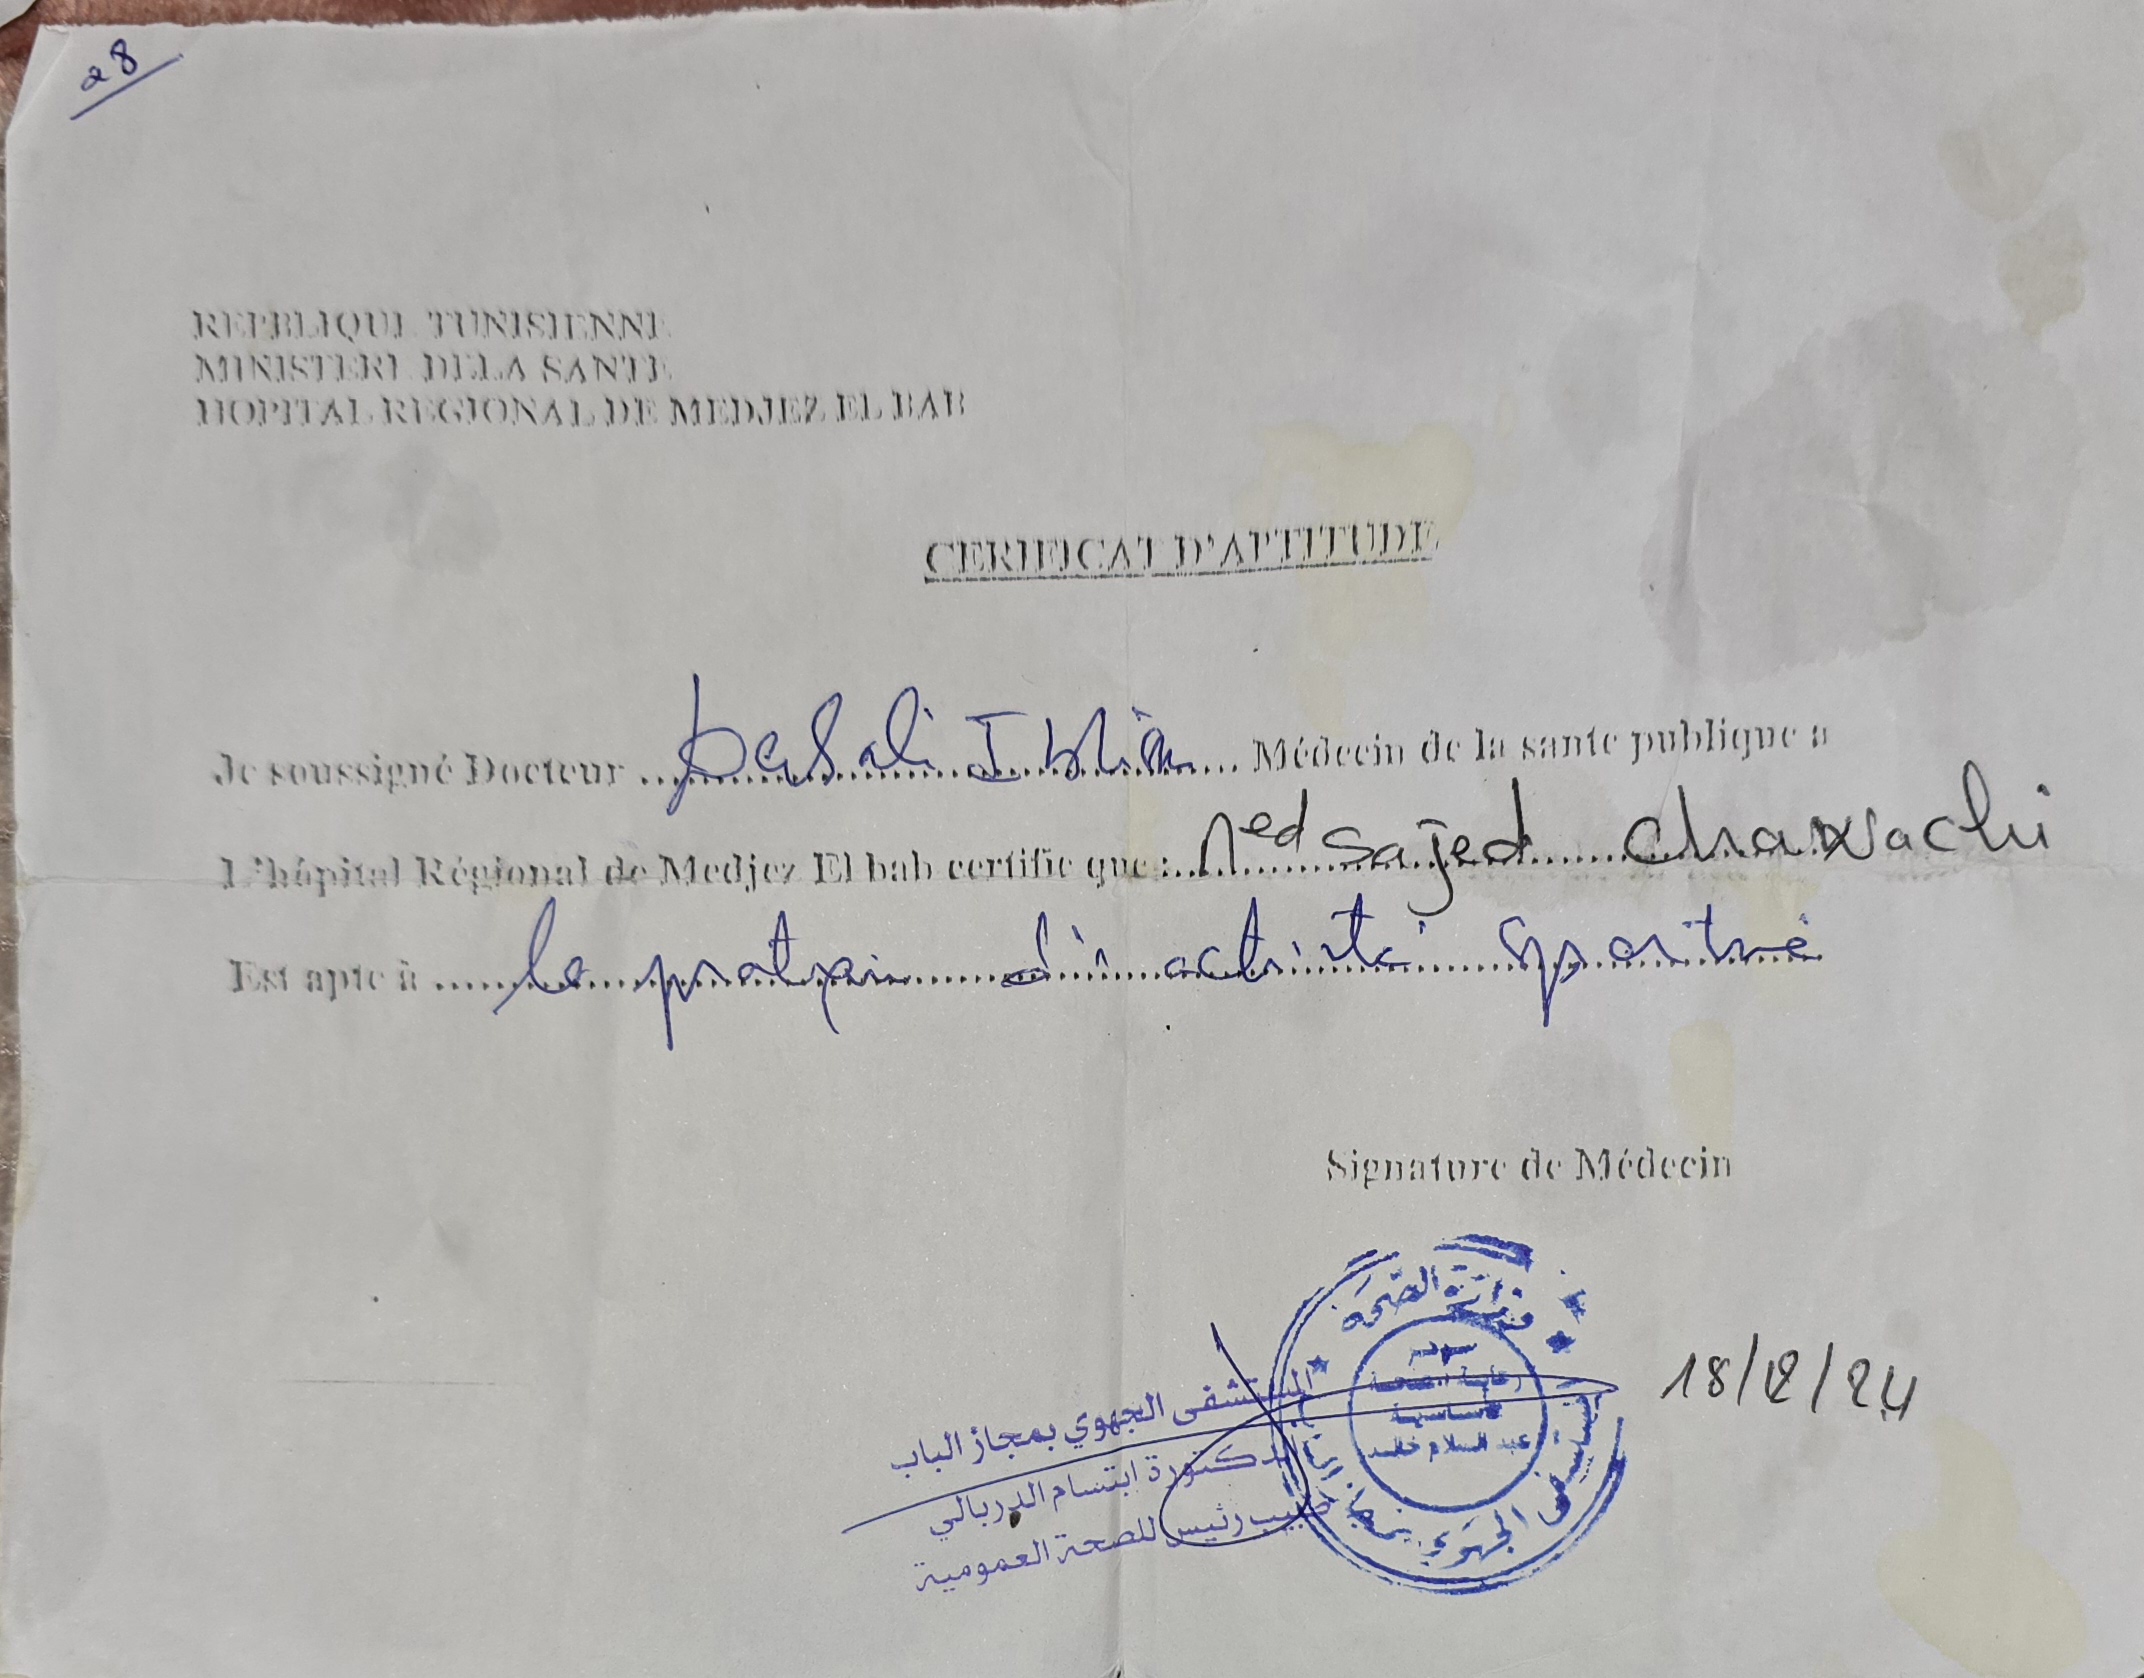 28
REPBLIQUE TUNISIENNE
MINISTERE DE LA SANTE
HOPITAL REGIONAL DE MEDJEZ EL BAB
CERIFICAT D'APTITUDE
Je soussigné Docteur ........ Médecin de la sante publique a
L'hôpital Régional de Medjez El bab certifie que : Med Sajed Charwachi
Est apte à la pratique d' activité sportive
Signature de Médecin
وزارة الصحة
عبد السلام
المستشفى الجهوي بمجاز الباب
18/12/24
المستشفى الجهوي بمجاز الباب
الدكتورة ابتسام الدربالي
طبيب رئيس للصحة العمومية